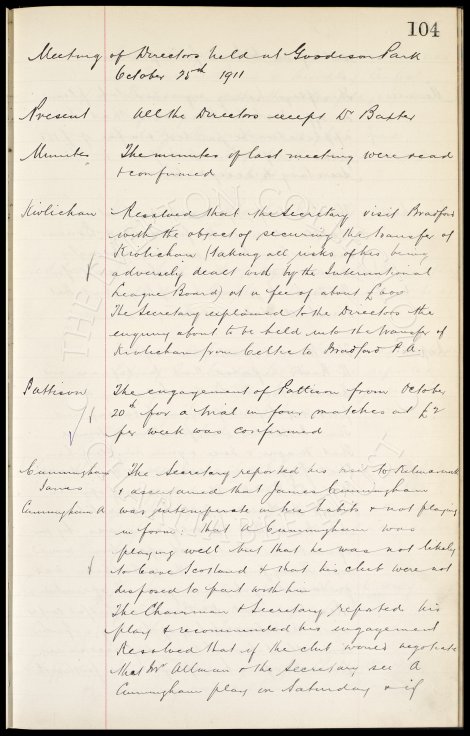 104
Meeting of Directors held at Goodison Park
October 25th 1911
Present All the Directors except Dr Baxter
Minutes The minutes of last meeting were read
& confirmed
Kivlichan Resolved that the Secretary visit Bradford
with the object of securing the transfer of
Kivlichan (taking all risks of his being
adversely dealt with by the International
League Board) at a fee of about
The Secretary explained to the Directors the
enquiry about to be held into the transfer of
Kivlichan from Celtic to Bradford P.A.
Pattison The engagement of Pattison from October
20th for a trial in four matches at £2
per week was confirmed
Cunningham The Secretary reported his visit to Kilmarnock
James & ascertained that James Cunningham
Cunningham A was intemperate in his habits & not playing
in form: that A Cunningham was
playing well but that he was not likely
to leave Scotland & that his club were not
disposed to part with him
The Chairman & Secretary reported his
play & recommended his engagement
Resolved that if the club would negotiate
that Mr Allman & the Secretary see A
Cunningham play on Saturday & if